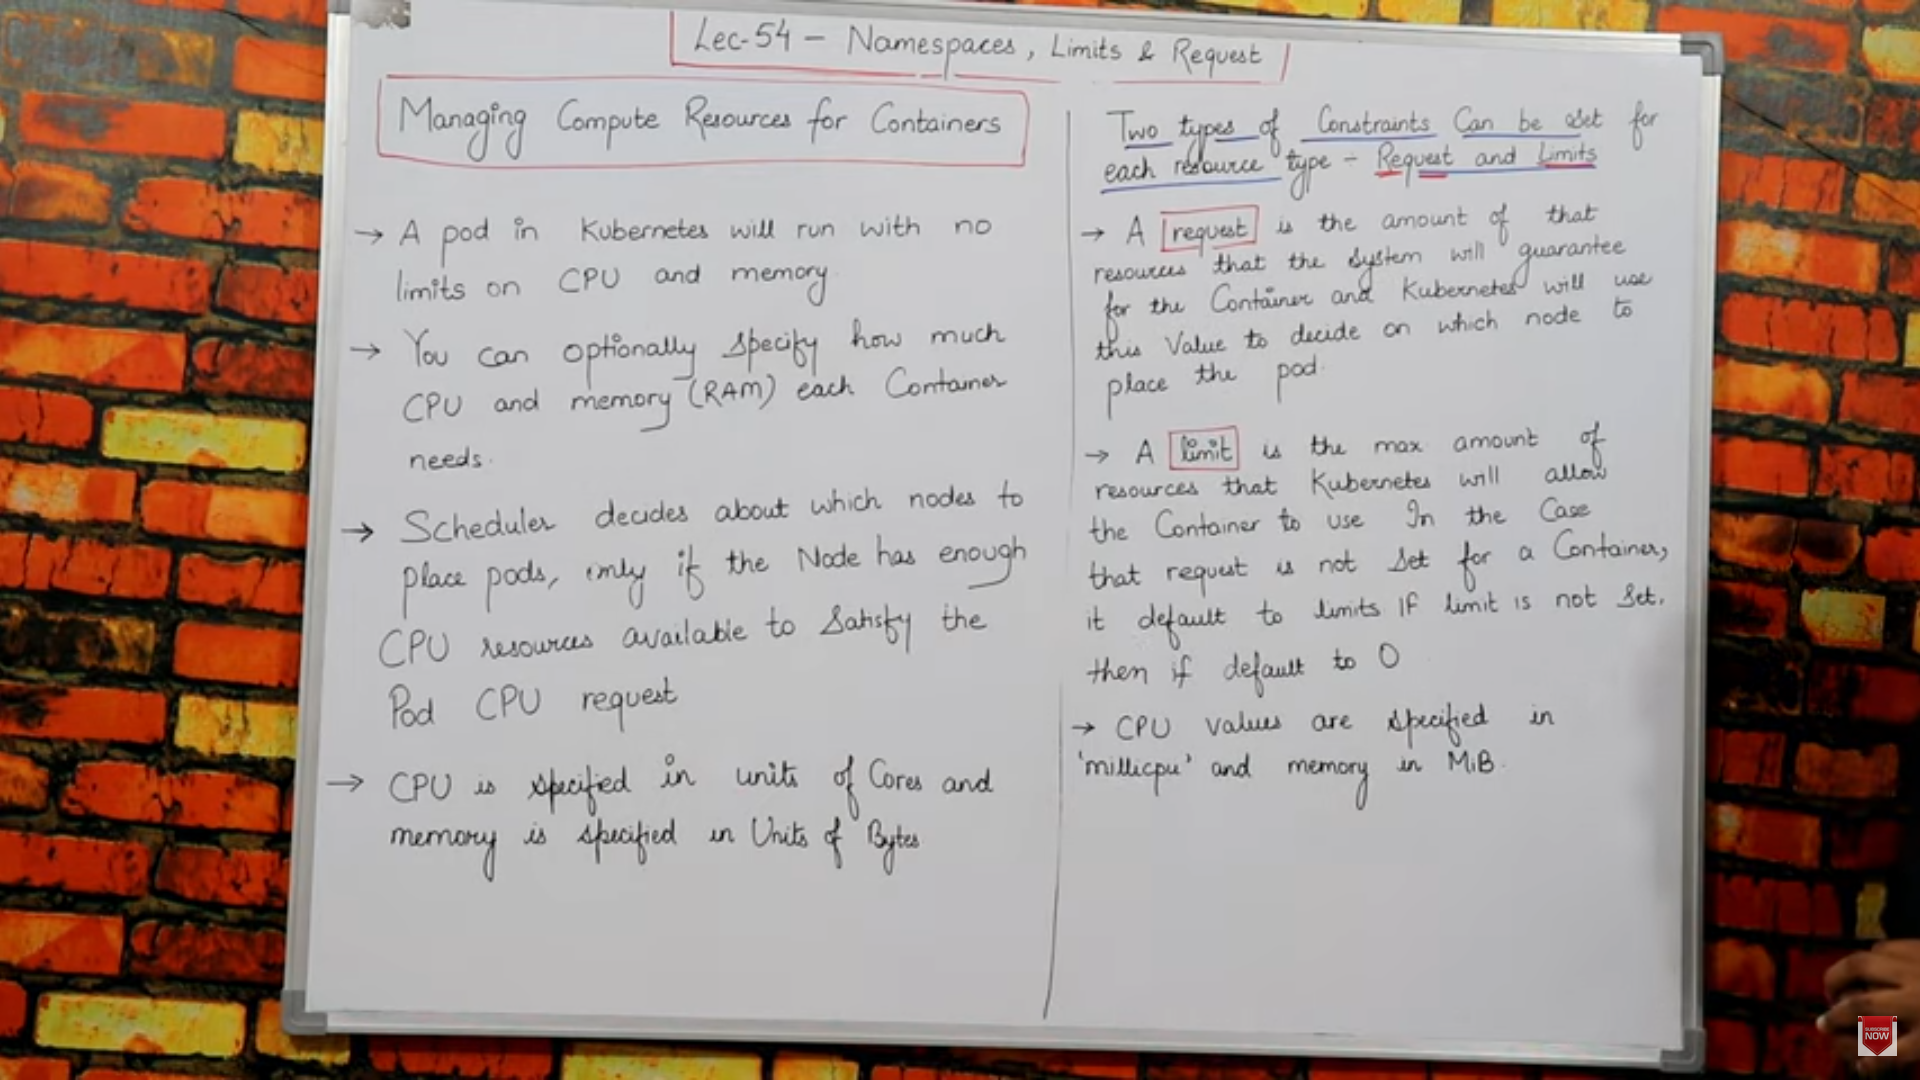 Lec-54 - Namespaces, Limits & Request
Managing Compute Resources for Containers
→ A pod in Kubernetes will run with no
limits on CPU and memory
→ You can optionally specify how much
CPU and memory (RAM) each Container
needs.
→ Scheduler decides about which nodes to
place pods, only if the Node has enough
CPU resources available to Satisfy the
Pod CPU request
→ CPU is specified in units of Cores and
memory is specified in Units of Bytes
Two types of Constraints Can be set for
each resource type - Request and Limits
→ A request is the amount of that
resources that the system will guarantee
for the Container and Kubernetes will use
this Value to decide on which node to
place the pod.
→ A limit is the max amount of
resources that Kubernetes will allow
the Container to use In the Case
that request is not Set for a Container,
it default to limits IF limit is not Set.
then if default to 0
→ CPU values are specified in
'millicpu' and memory in MiB.
SUBSCRIBE
NOW